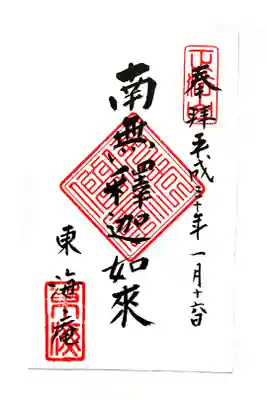 奉拝 平成三十年一月十六日
南無釋迦如來
東海庵